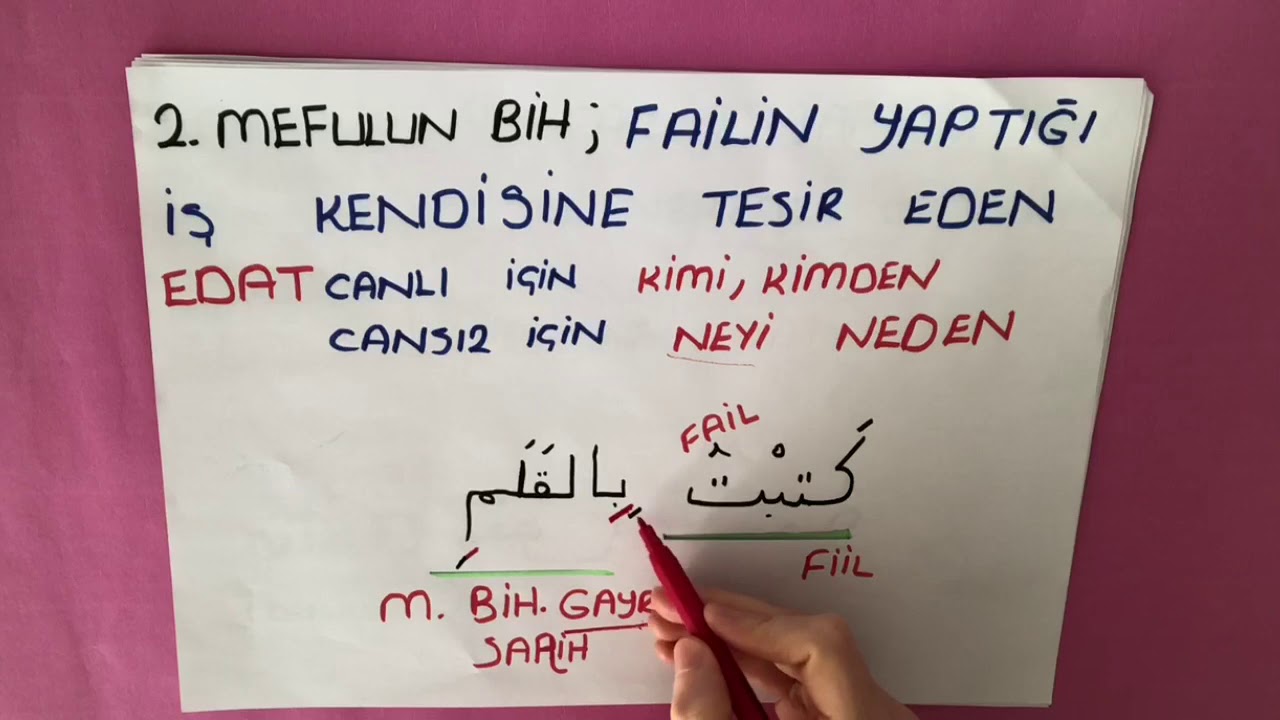 2. MEFULUN BİH; FAİLİN YAPTIĞI
İŞ KENDİSİNE TESİR EDEN
EDAT CANLI İÇİN KİMİ, KİMDEN
CANSIZ İÇİN NEYİ NEDEN
FAİL
كَتبْتُ بِالقَلَمِ
FİİL
M. BİH. GAYR
SARİH